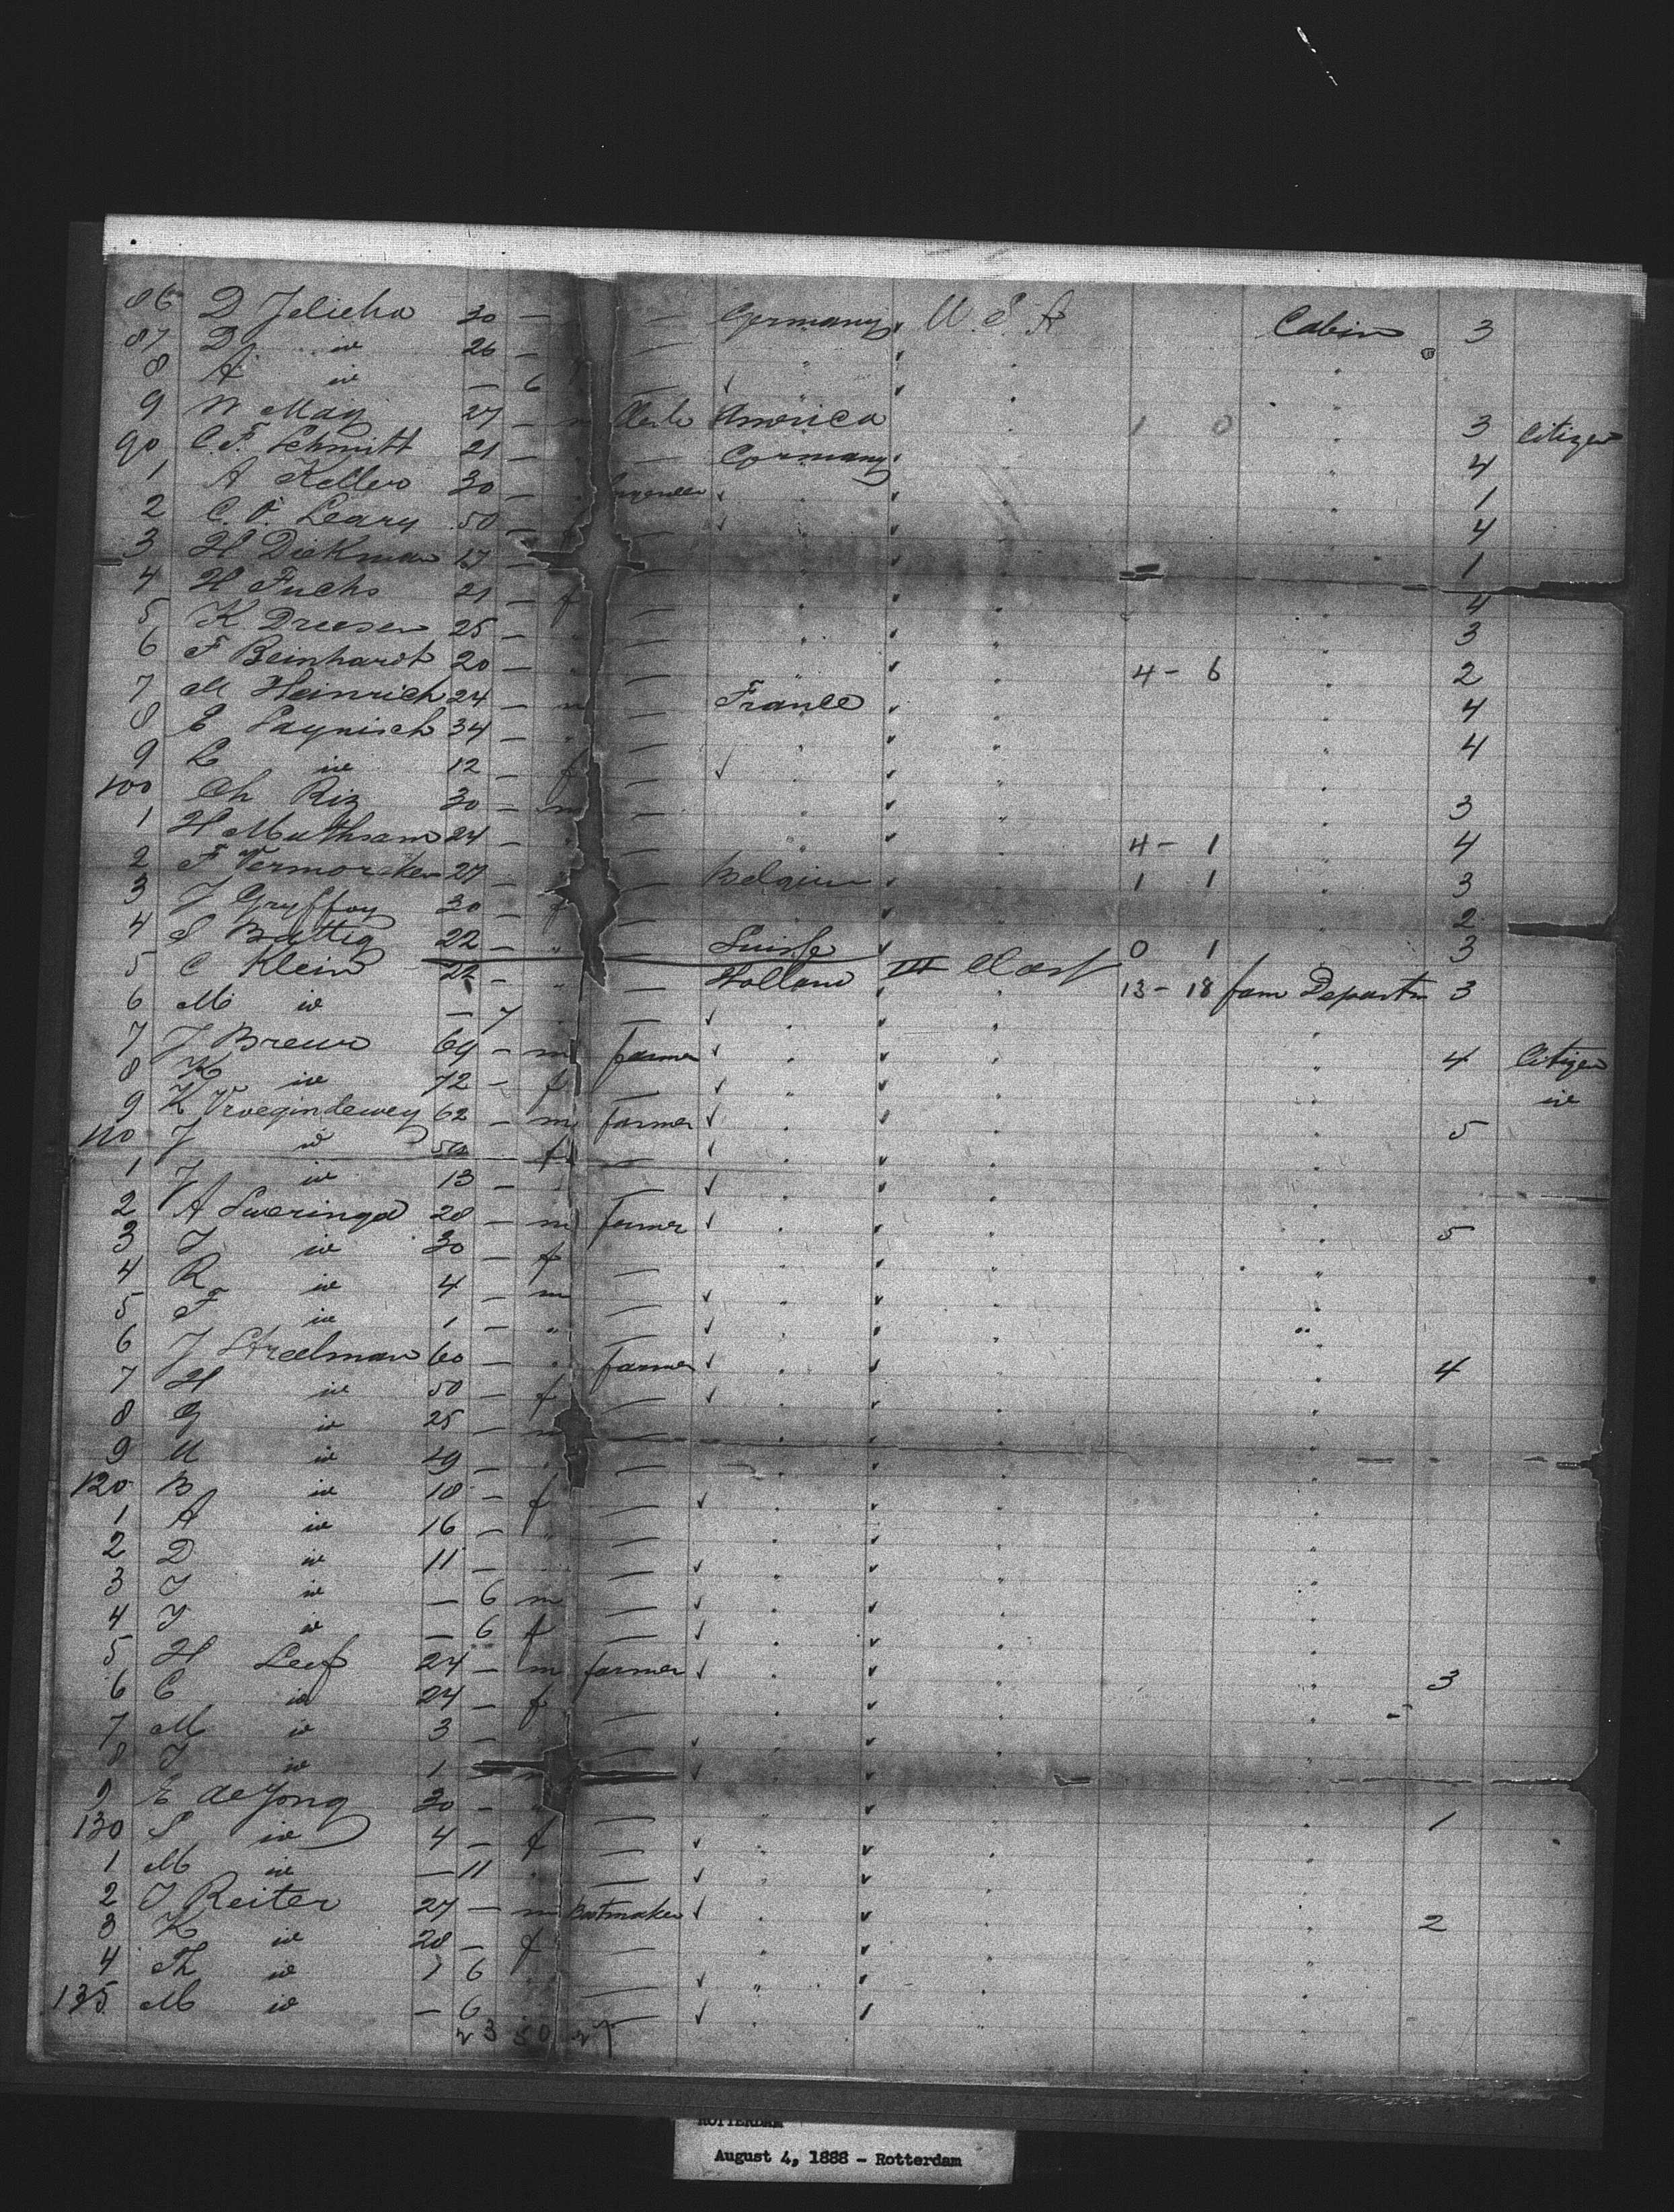 86 D Jelicha 30 — — Germany U.S.A Cabin 3
87 D iw 26 — —
8 A iw — 6 —
9 W May 27 — m America 1 0 3 Citizen
90 C.F. Schmitt 21 — — Germany 4
1 A Keller 30 — 1
2 C. O. Leary 50 — 4
3 H Diekman 17 — 1
4 H Fuchs 21 — f — 4
5 K Dreesen 25 — — 3
6 F Beinhardt 20 — — 4 - 6 2
7 M Heinrich 24 — m — France 4
8 E 34 — — 4
9 L iw 12 — f —
100 Ch Riz 30 — m — 3
1 H Muthsam 24 — — 4 - 1 4
2 F 27 — — Belgium 1 1 3
3 J Gryffoy 30 — f — 2
4 S Battig 22 — " — Suisse 0 1 3
5 C Klein 22 — — Holland III Class 13 - 18 fam Departm 3
6 M iw — 7 —
7 J 69 — m farmer 4 Citizen
8 K iw 72 — f — iw
9 K Vroegindewey 62 — m farmer 5
110 J iw 50 — f —
1 J iw 13 — —
2 A Sweringa 28 — m farmer 5
3 J iw 30 — f —
4 R iw 4 — m —
5 F iw 1 — " —
6 J Streelman 60 — farmer 4
7 H iw 50 — f —
8 G iw 25 — m —
9 M iw 19 — —
120 B iw 18 — f —
1 A iw 16 — " —
2 D iw 11 — —
3 J iw — 6 m —
4 J iw — 6 f —
5 H 24 — m farmer 3
6 C iw 24 — f —
7 M iw 3 — —
8 J iw 1 — m
9 E de Jong 30 — " — 1
130 S iw 4 — f —
1 M iw — 11 —
2 J Reiter 27 — m Bootmaker 2
3 K iw 28 — f —
4 Th iw 6 —
135 M iw — 6 —
ROTTERDAM
August 4, 1888 - Rotterdam